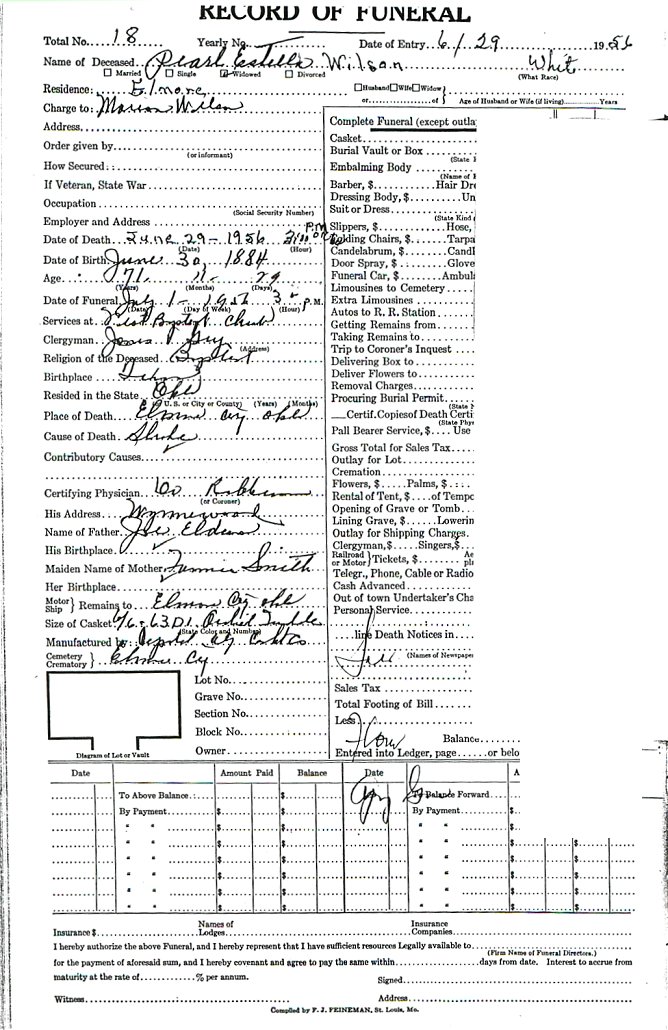 RECORD OF FUNERAL
Total No. 18 Yearly No. Date of Entry 6/29 1956
Name of Deceased Pearl Estella Wilson Whit
Married Single Widowed Divorced (What Race)
Residence: Elmore Husband Wife Widow
or of Age of Husband or Wife (if living) Years
Charge to: Marion Wilson
Address
Order given by
(or informant)
How Secured
If Veteran, State War
Occupation
(Social Security Number)
Employer and Address
Date of Death June 29 - 1956 P.M.
(Date) (Hour)
Date of Birth June 30, 1884
Age 71 11 29
(Years) (Months) (Days)
Date of Funeral July 1 - 1956 3 P.M.
(Date) (Day of Week) (Hour)
Services at First Baptist Church
Clergyman
(Address)
Religion of the Deceased Baptist
Birthplace
(U. S. or City or County) (Years) (Months)
Resided in the State Okl
Place of Death Elmore City Okl
Cause of Death Stroke
Contributory Causes
Certifying Physician Dr
(or Coroner)
His Address Wynnewood
Name of Father Joe
His Birthplace
Maiden Name of Mother Smith
Her Birthplace
Motor Ship Remains to Elmore City Okl
Size of Casket 6/6 - 63D1
(State Color and Number)
Manufactured by
Cemetery Crematory Elmore Cy
Lot No.
Grave No.
Section No.
Block No.
Owner
Diagram of Lot or Vault
Complete Funeral (except outla
Casket
Burial Vault or Box
(State
Embalming Body
(Name of
Barber, $ Hair Dre
Dressing Body, $ Un
Suit or Dress
(State Kind
Slippers, $ Hose,
Folding Chairs, $ Tarpa
Candelabrum, $ Candl
Door Spray, $ Glove
Funeral Car, $ Ambul
Limousines to Cemetery
Extra Limousines
Autos to R. R. Station
Getting Remains from
Taking Remains to
Trip to Coroner's Inquest
Delivering Box to
Deliver Flowers to
Removal Charges
Procuring Burial Permit
(State
Certif. Copies of Death Certi
(State Phys
Pall Bearer Service, $ Use
Gross Total for Sales Tax
Outlay for Lot
Cremation
Flowers, $ Palms, $
Rental of Tent, $ of Tempo
Opening of Grave or Tomb
Lining Grave, $ Lowerin
Outlay for Shipping Charges
Clergyman, $ Singers, $
Railroad or Motor Tickets, $ Ae pla
Telegr., Phone, Cable or Radio
Cash Advanced
Out of town Undertaker's Cha
Personal Service
line Death Notices in
(Names of Newspape
Sales Tax
Total Footing of Bill
Less
Balance
Entered into Ledger, page or belo
Date Amount Paid Balance Date A
To Above Balance $ To Balance Forward
By Payment $ $ By Payment $
" " $ $ " " $ $
" " $ $ " " $ $
" " $ $ " " $ $
" " $ $ " " $ $
" " $ $ " " $ $
" " $ $ " " $ $
Insurance $ Names of Lodges Insurance Companies
I hereby authorize the above Funeral, and I hereby represent that I have sufficient resources Legally available to
(Firm Name of Funeral Directors.)
for the payment of aforesaid sum, and I hereby covenant and agree to pay the same within days from date. Interest to accrue from
maturity at the rate of % per annum. Signed
Witness Address
Compiled by F. J. FEINEMAN, St. Louis, Mo.